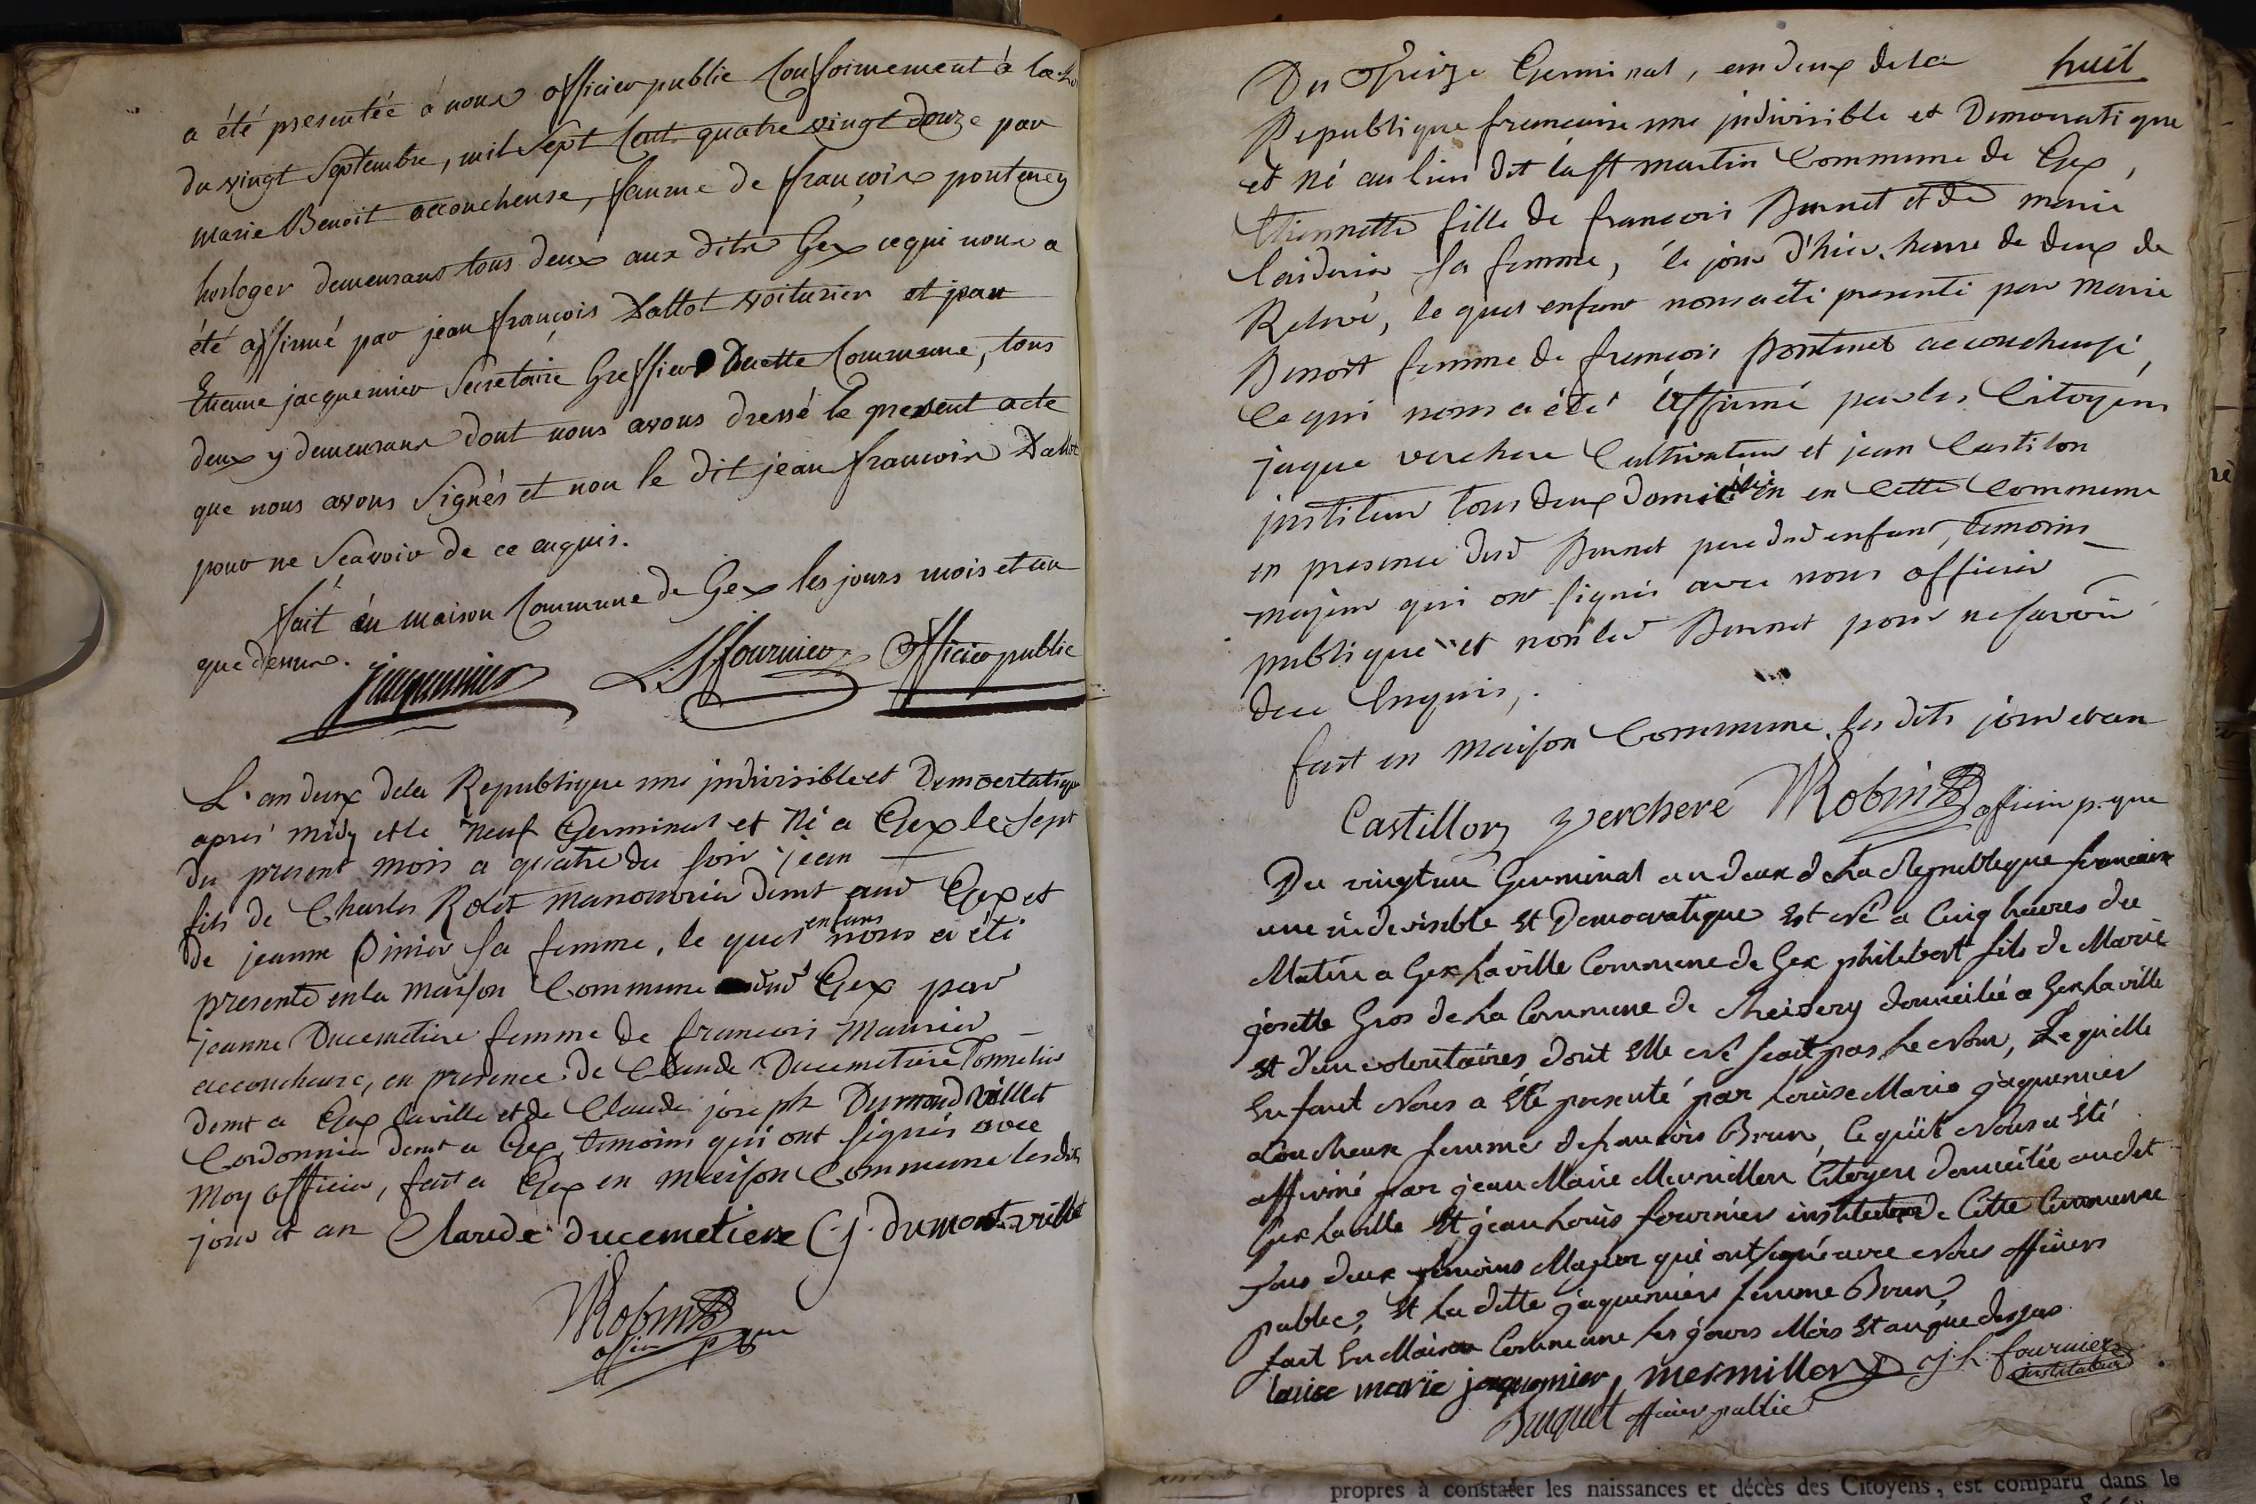 a été presentée à nous officier public Conformement à la Loi
du vingt Septembre, mil Sept Cent quatre vingt douze par
marie Benoit accoucheuse, famme de françois ponteney
horloger demeurans tous deux aux dits Gex ce qui nous a
été affirmé par jean françois Dallot voiturier et jean
Etienne jacquemier Secretaire Greffier Ducette Commune, tous
deux y demeurans dont nous avons dressé le present acte
que nous avons Signés et non le dit jean francois Dallot
pour ne Scavoir de ce enquis.
fait en maison Commune de Gex les jours mois et an
que dessus. jacquemier L. J. fournier officier public
L'an deux dela Republique une jndivisible et Democratique
apres midy et le neuf Germinal et Né a Gex le sept
du present mois a quatre du soir jean
fils de Charles Rolet manouvrier demt aud Gex et
de jeanne Pinier sa femme, le quel enfans nous a été
presenté en la maison Commune dud Gex par
jeanne Ducemetiere femme de francois Maunier
accoucheuse, en presence de Claude Ducemetiere Tonnelier
demt a Gex laville et de Claude joseph Dumond Villet
Cordonnier demt a Gex, temoins qui ont signés avec
moy officier, fait a Gex en maison Commune lesdits
jour et an Claude ducemetiere C. j. dumont villet
Robin
officier p que
huit
Du Treize Germinal, an deux dela
Republique francaise une jndivisible et Democratique
et Né au lieu dit la st martin Commune de Gex,
Etiennette fille de francois Burnet et de marie
sa femme, le jour d'hier heure de deux de
Relevé, le quel enfant nous a été presenté par marie
Benoit femme de françois Pontenet accoucheuse,
Ce qui nous a été affirmé par les Citoyens
jaque verchere Cultivateur et jean Castilon
jnstiteur tous deux domiciliés en Cette Commune
en presence dud Burnet pere dud enfant, temoins
majeur qui ont signés avec nous officier
publique et non led Burnet pour ne savoir
dece Enquis,
fait en maison Commune, les dits jour et an
Castillon verchere Robin officier p. que
Du vingt un Germinal an deux de La Republique francaise
une indevisible Et Democratique Est né a Cinq heures du
Matin a Gex La ville Commune de Gex philibert fils de Marie
josette Gros de La Commune de Cheisery domicilié a Gex La ville
Et d'un volontaires, dont Elle ne scait pas Le Nom, Lequelle
Enfant Nous a Eté presenté par Louise Marie jaquemier
acoucheuse femme de francois Brun, Ce qu'il Nous a Eté
affirmé par jean Marie Mermillon Citoyen domicilié audit
Gex La ville Et jean Louis fournier instituteur de Cette Commune
Tous deux Temoins Majeur qui ont signé avec Nous officiers
public, Et La ditte jaquemier femme Brun,
fait En Maison Commune Les jours Mois Et an que dessus
louise marie jaquemier, mermillon j. L. fournier
instituteur
Buquet officier public
propres à constater les naissances et décès des Citoyens, est comparu dans le